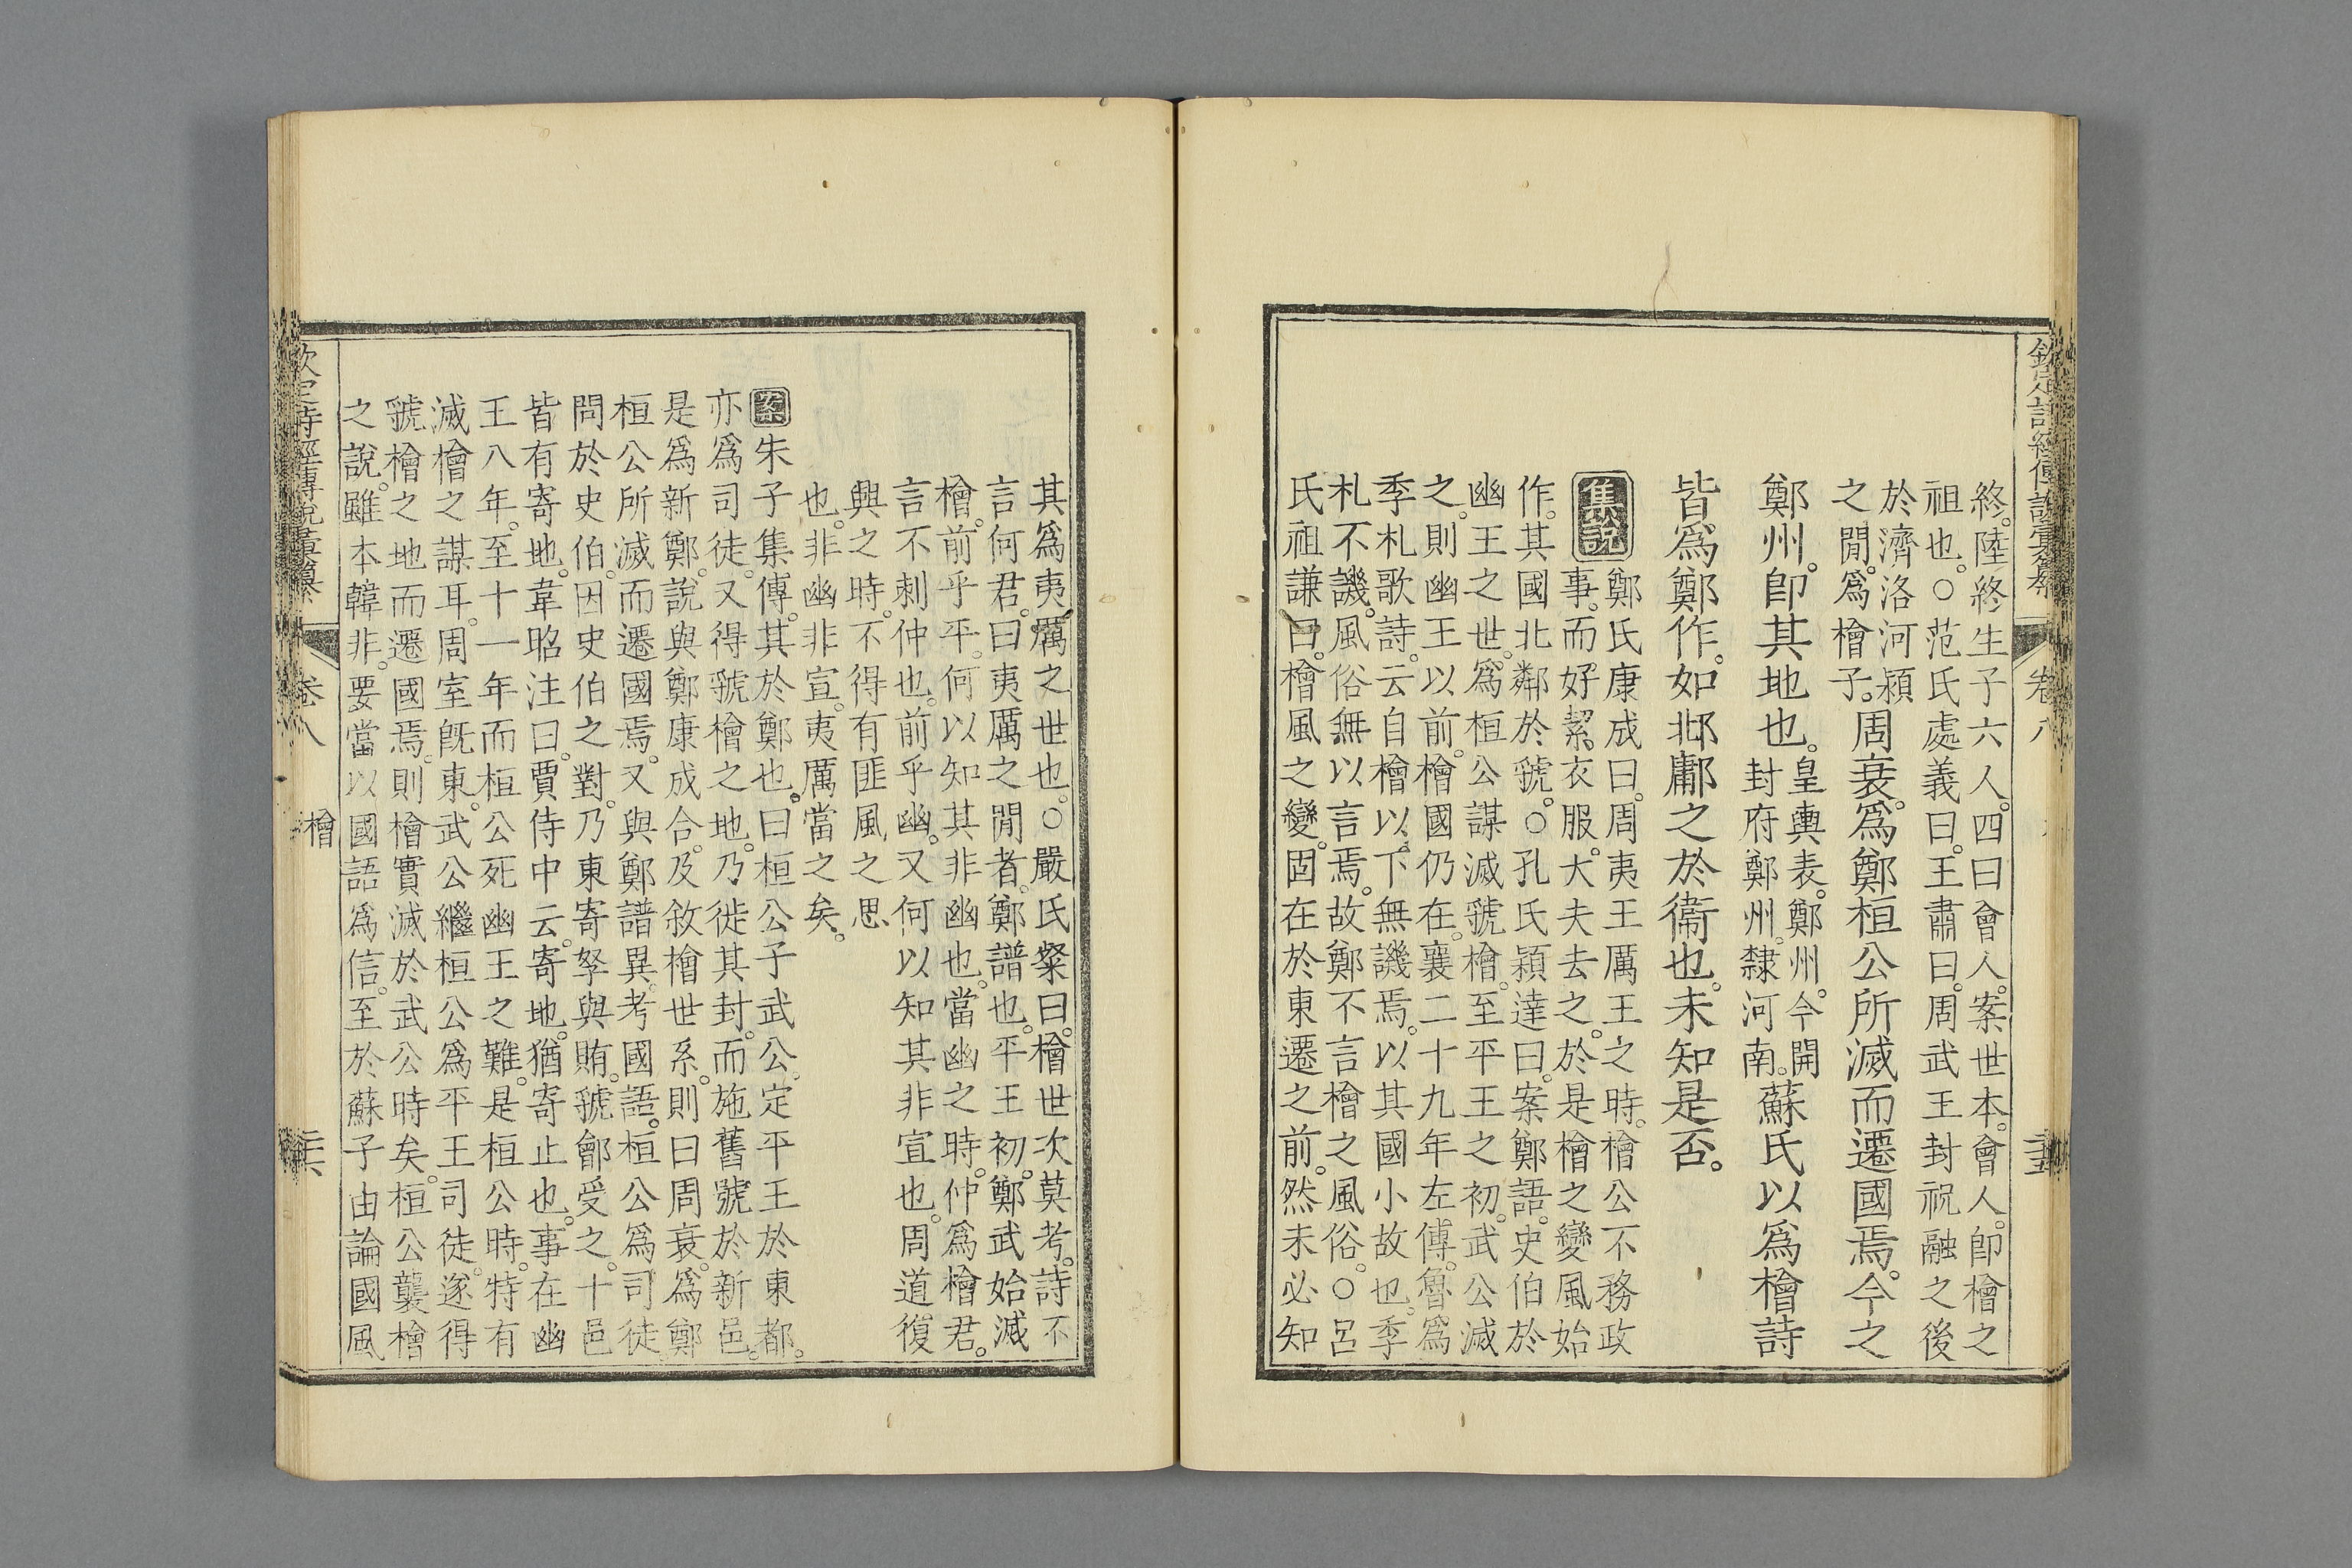 欽定詩經傳說彙纂
卷八
終。陸終生子六人。四曰會人。案世本。會人。卽檜之
祖也。○范氏處義曰。王肅曰。周武王封祝融之後
於濟洛河潁
之閒。爲檜子。周衰。爲鄭桓公所滅而遷國焉。今之
鄭州。卽其地也。皇輿表。鄭州。今開
封府鄭州。隸河南。蘇氏以爲檜詩
皆爲鄭作。如邶鄘之於衞也。未知是否。
集說
鄭氏康成曰。周夷王厲王之時。檜公不務政
事。而好絜衣服。大夫去之。於是檜之變風始
作。其國北鄰於虢。○孔氏穎達曰。案鄭語。史伯於
幽王之世。爲桓公謀滅虢檜。至平王之初。武公滅
之。則幽王以前。檜國仍在。襄二十九年左傳。魯爲
季札歌詩。云自檜以下無譏焉。以其國小故也。季
札不譏。風俗無以言焉。故鄭不言檜之風俗。○呂
氏祖謙曰。檜風之變。固在於東遷之前。然未必知
其爲夷厲之世也。○嚴氏粲曰。檜世次莫考。詩不
言何君。曰夷厲之閒者。鄭譜也。平王初。鄭武始滅
檜。前乎平。何以知其非幽也。當幽之時。仲爲檜君。
言不刺仲也。前乎幽。又何以知其非宣也。周道復
興之時。不得有匪風之思
也。非幽非宣。夷厲當之矣。
案
朱子集傳。其於鄭也。曰桓公子武公。定平王於東都。
亦爲司徒。又得虢檜之地。乃徙其封。而施舊號於新邑。
是爲新鄭。說與鄭康成合。及敘檜世系。則曰周衰。爲鄭
桓公所滅而遷國焉。又與鄭譜異。考國語。桓公爲司徒。
問於史伯。因史伯之對。乃東寄孥與賄。虢鄶受之。十邑
皆有寄地。韋昭注曰。賈侍中云。寄地。猶寄止也。事在幽
王八年。至十一年而桓公死幽王之難。是桓公時。特有
滅檜之謀耳。周室旣東。武公繼桓公爲平王司徒。遂得
虢檜之地而遷國焉。則檜實滅於武公時矣。桓公襲檜
之說。雖本韓非。要當以國語爲信。至於蘇子由論國風
欽定詩經傳說彙纂
卷八
檜